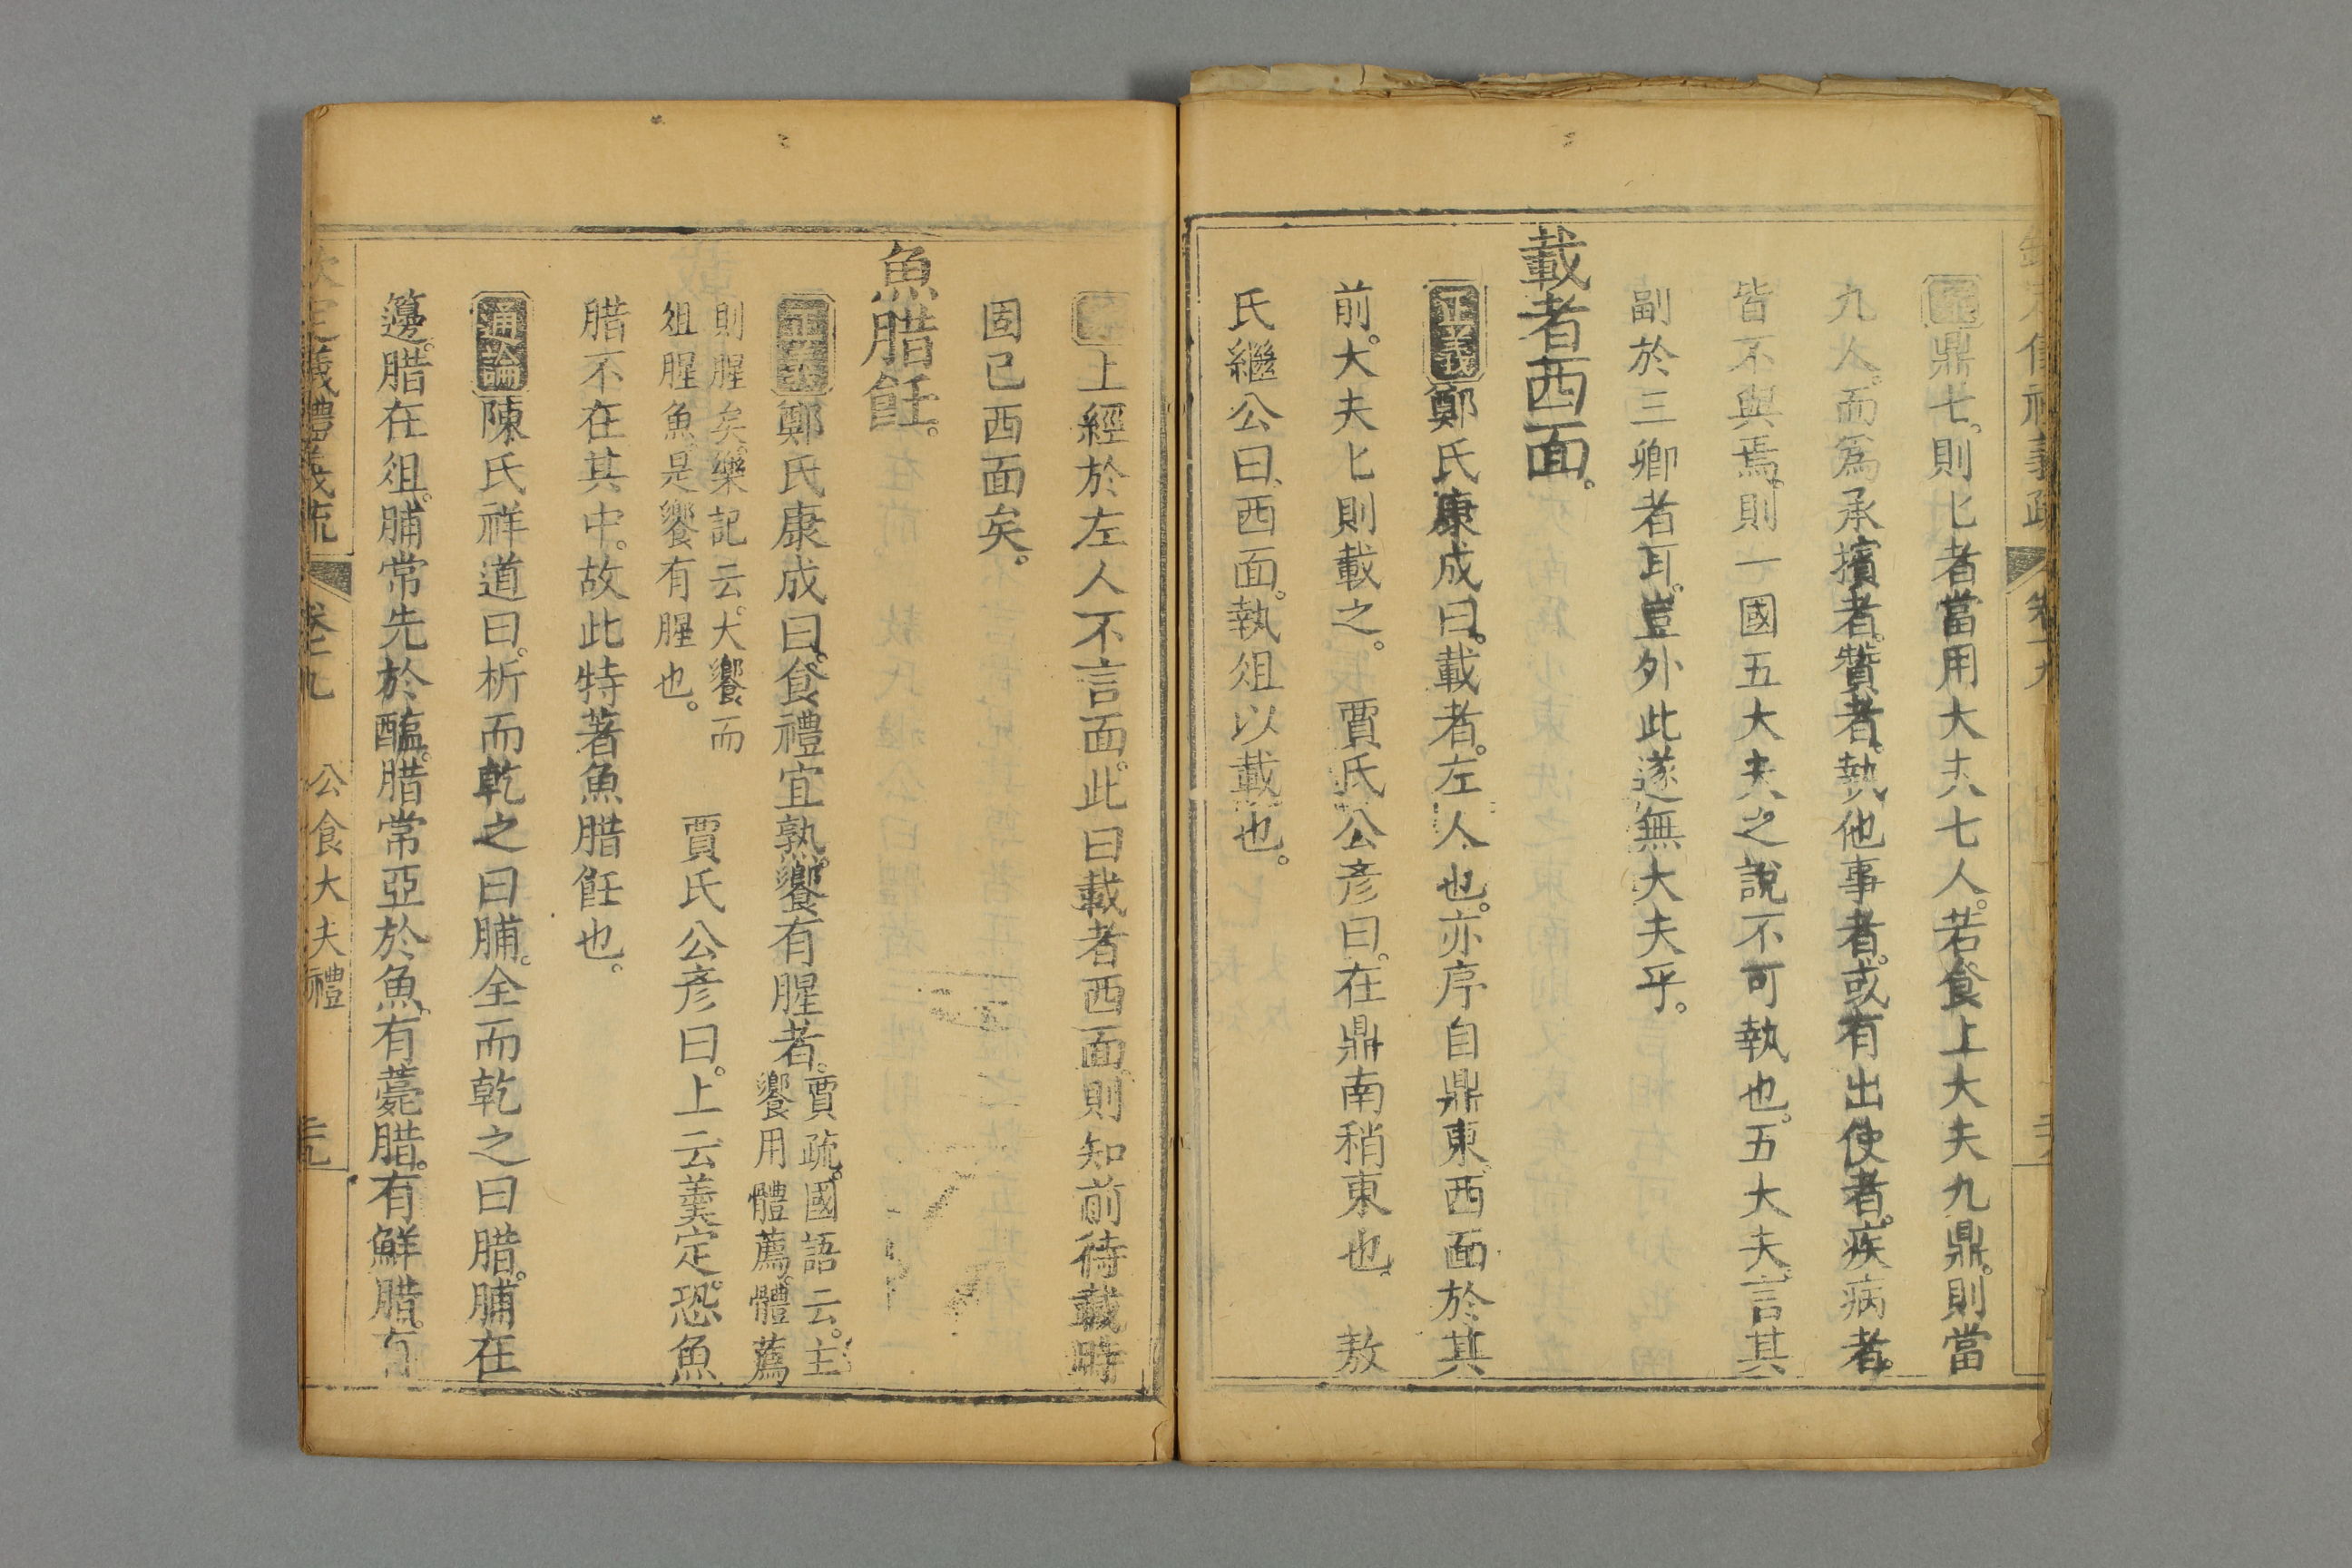 鼎七。則匕者當用大夫七人。若食上大夫九鼎。則當
九人。而爲承擯者。贊者。執他事者。或有出使者。疾病者。
皆不與焉。則一國五大夫之說不可執也。五大夫言其
副於三卿者耳。豈外此遂無大夫乎。
載者西面。
正義鄭氏康成曰。載者。左人也。亦序自鼎東西面於其
前。大夫匕則載之。賈氏公彥曰。在鼎南稍東也。敖
氏繼公曰、西面。執俎以載也。
上經於左人不言面。此曰載者西面。則知前待載時
固已西面矣。
魚腊飪。
正義鄭氏康成曰。食禮宜熟。饗有腥者。賈疏。國語云。主
饗用體薦。體薦
則腥矣。樂記云。大饗而
俎腥魚。是饗有腥也。賈氏公彥曰。上云羹定。恐魚
腊不在其中。故此特著魚腊飪也。
通論陳氏祥道曰。析而乾之曰脯。全而乾之曰腊。脯在
籩。腊在俎。脯常先於醢。腊常亞於魚。有薨腊。有鮮腊。有
欽定儀禮義疏 卷十九 公食大夫禮